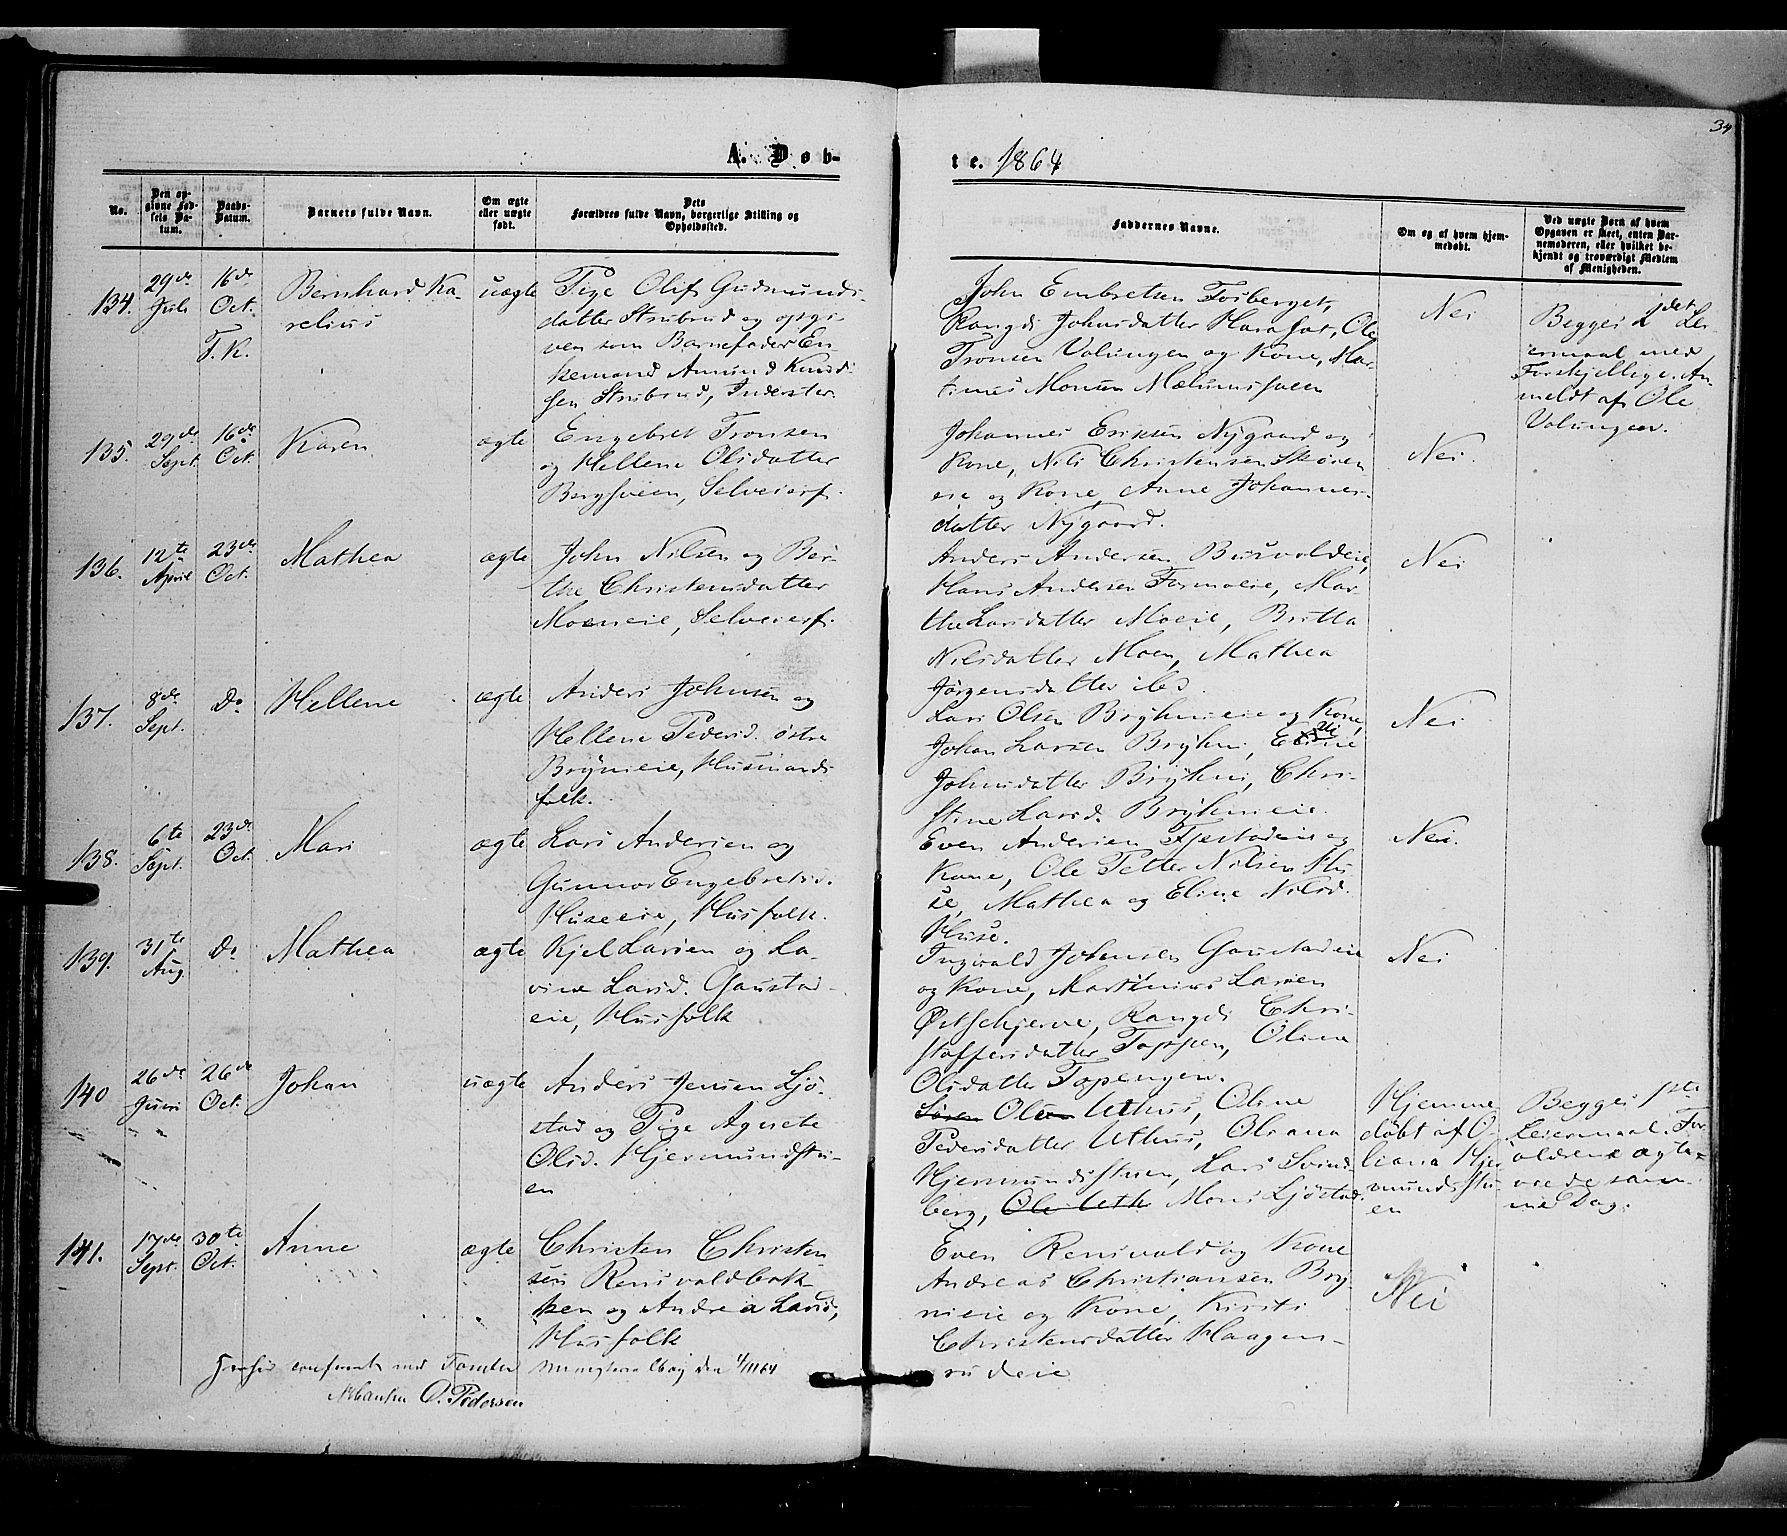 34
A. Døb-
te. 1864
No.
Den op-
givne Fød-
sels Da-
tum.
Daabs-
Datum.
Barnets fulde Navn.
Om ægte
eller uægte
født.
Dets
Forældres fulde Navn, borgerlige Stilling og
Opholdssted.
Faddernes Navne.
Om og af hvem hjem-
medøbt.
Ved uægte Børn af hvem
Opgaven er skeet, enten Bar-
nemoderen, eller hvilket be-
kjendt og troværdigt Medlem
af Menigheden.
134.
29de
Juli
16de
Oct.
T.K.
Bernhard Ka-
relius
uægte
Pige Olif Gudmunds-
datter Strubrud og opgi-
ven som Barnefader En-
kemand Amund Knud-
sen Strubrud, Inderster
John Embretsen Fosberget,
Rangdi Johnsdatter Haraset, Ole
Tronsen Volungen og Kone, Mar-
tinus Monsen Mælumsveen
Nei
Begges 2det Lei-
ermaal med
Forskjellige. An-
meldt af Ole
Volungen.
135.
29de
Sept.
16de
Oct.
Karen
ægte
Engebret Tronsen
og Hellene Olsdatter
Bergsveen, Selveierf.
Johannes Eriksen Nygaard og
Kone, Nils Christensen Skøien
eie og Kone, Anne Johannes-
datter Nygaard.
Nei.
136.
12te
April
23de
Oct.
Mathea
ægte
John Nilsen og Ber-
the Christensdatter
Moeneie, Selveierf.
Anders Andersen Busvoldeie,
Hans Andersen Formoeie, Mar-
the Larsdatter Moeie, Britta
Nilsdatter Moen, Mathea
Jørgensdatter ibd.
Nei
137.
8de
Sept.
Do
Hellene
ægte
Anders Johnsen og
Hellene Pedersd. østre
Brynieie, Husmands-
folk.
Lars Olsen Bryhnieie og Kone,
Johan Larsen Bryhni, Eline
Johnsdatter Bryhni, Chri-
stine Larsd. Bryhnieie.
Nei
138.
6te
Sept.
23de
Oct.
Mari
ægte
Lars Andersen og
Gunnor Engebretsd.
Huseeie, Husfolk.
Even Andersen Fjestadeie og
Kone, Ole Petter Nilsen Hu-
se, Mathea og Eline Nilsd.
Huse.
Nei.
139.
31te
Aug.
Do
Mathea
ægte
Kjel Larsen og La-
vine Larsd. Gaustad-
eie, Husfolk
Ingvald Johnsen Gaustadeie
og Kone, Marthinus Larsen
Østsehjerne, Rangdi Chri-
stoffersdatter Toppen, Olava
Olsdatter Topengen.
Nei
140
26de
Juni
26de
Oct.
Johan
uægte
Anders Jensen Ljø-
stad og Pige Agnete
Olsd. Hjermundstu-
en
Olsen Uthus, Oline
Pedersdatter Uthus, Oleana
Hjermundstuen, Lars Svend-
berg, Ole Uth Mons Ljøstad.
Hjemme
døbt af O-
liana Hjer
mundstu-
en
Begges 1ste
Leiermaal. For-
ældrene ægte-
viede sam-
me Dag.
141.
17de
Sept.
30te
Oct.
Anne
ægte
Christen Christen-
sen Rensvoldbak-
ken og Andrea Larsd,
Husfolk
Even Rensvold og Kone
Andreas Christiansen Bry-
nieie og Kone, Kirsti
Christensdatter Haagen-
rudeie
Nei
conferert med Ministerialbog den 1/11 64
O. Pedersen